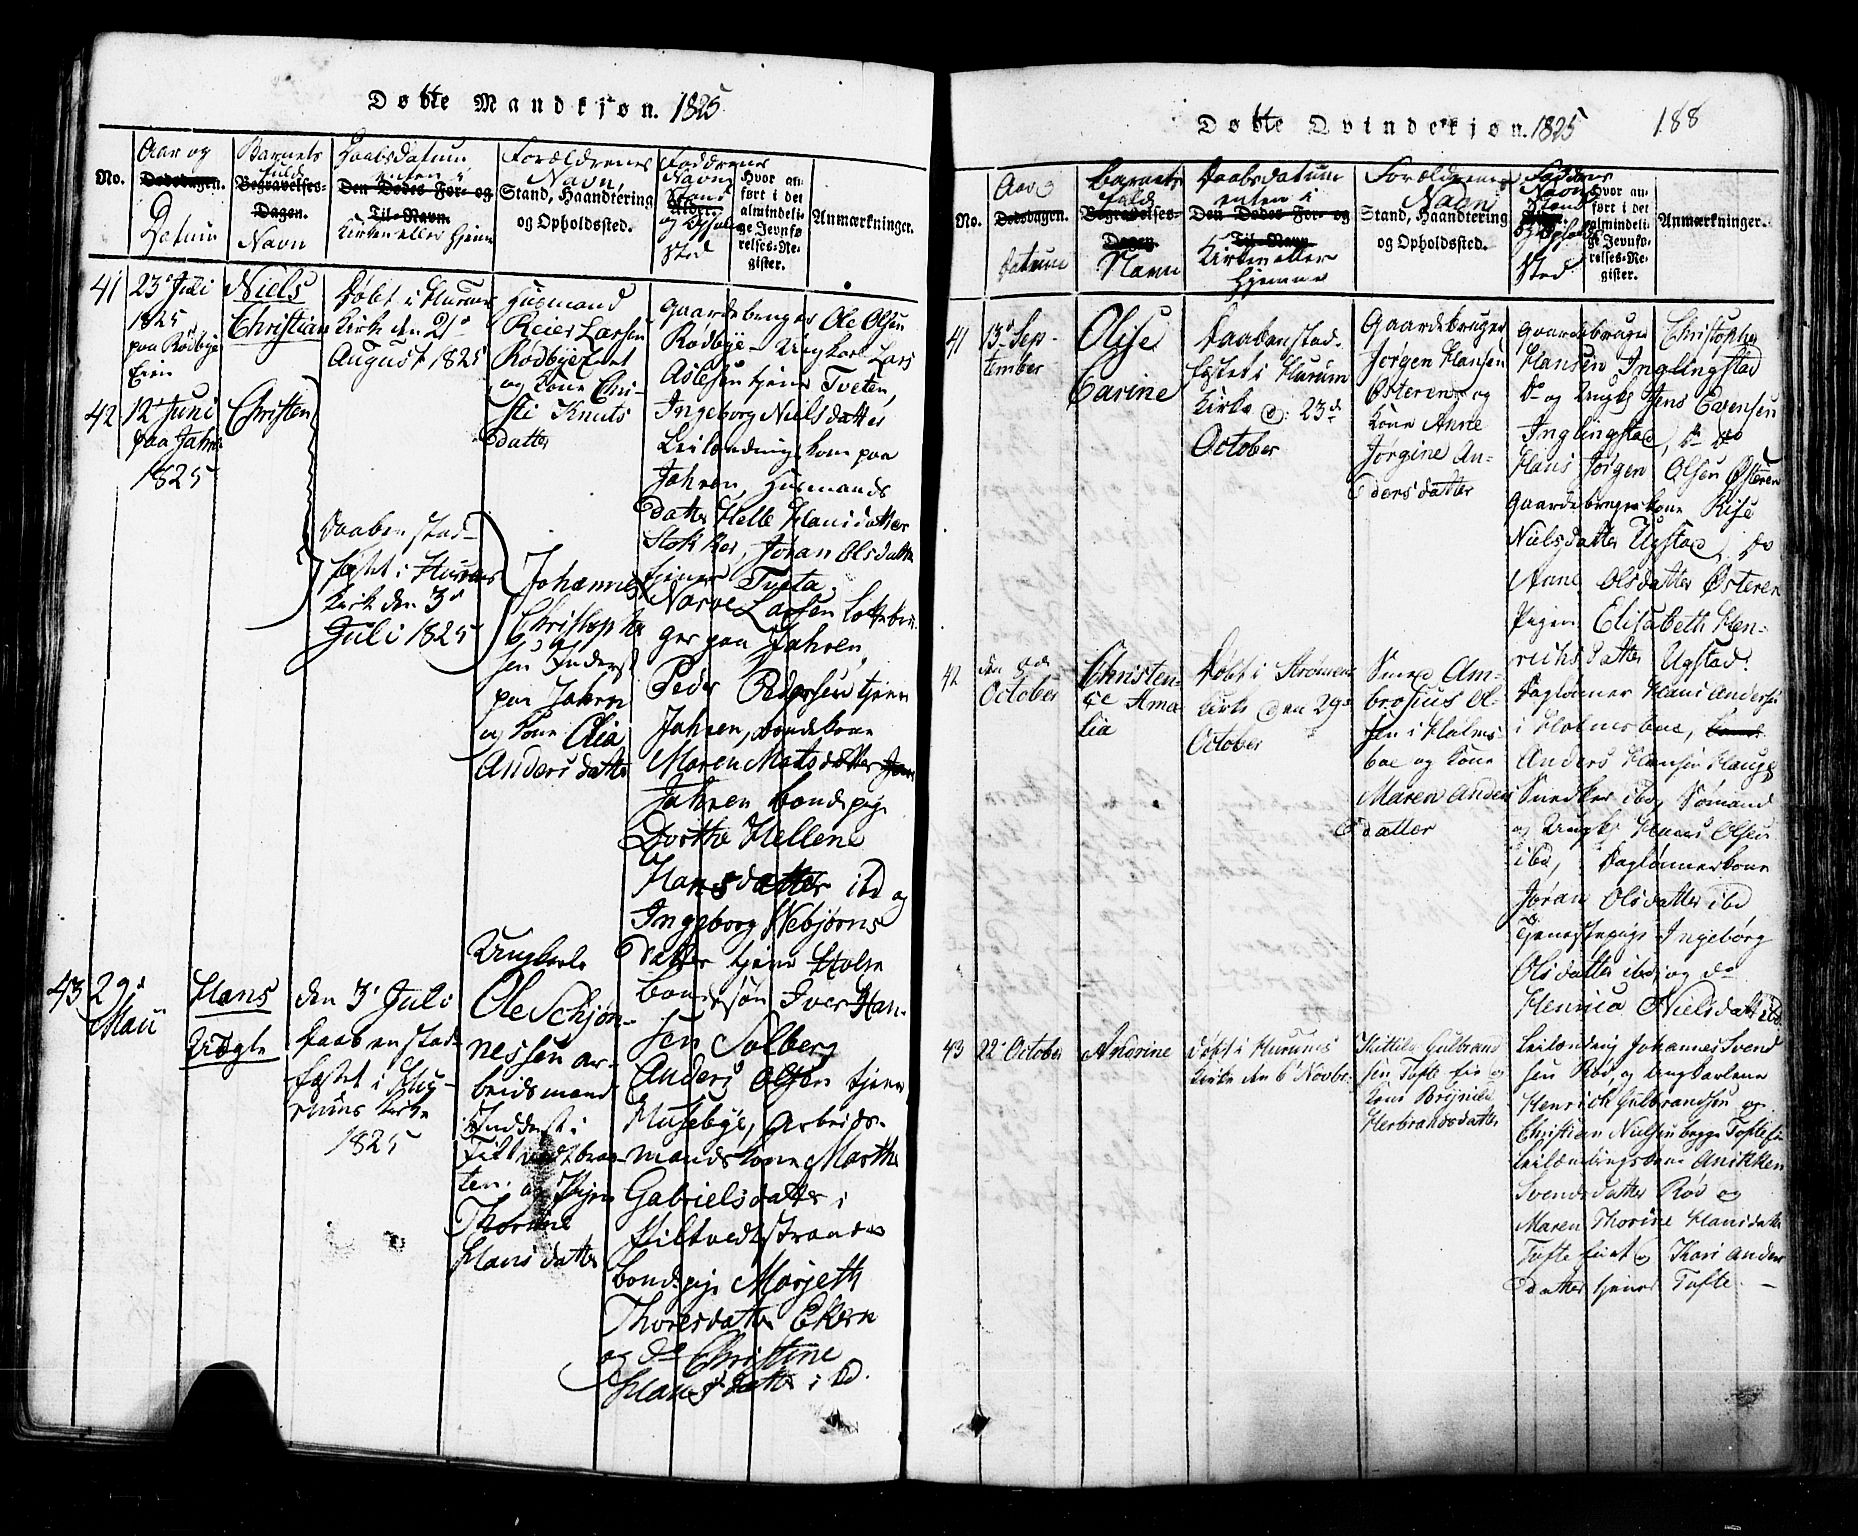 Døbte Mandkjøn. 1825
No.
Aar og
Dødsdagen.
Datum
Barnets
fulde
Begravelses-
Dagen.
Navn
Daabsdatum
enten i
Den Dødes For- og
Til-Navn.
Kirken eller hjemme
Forældrenes
Navn,
Stand, Haandtering
og Opholdssted.
Faddrenes
Navn
Stand
og Opholds
sted
Hvor an-
ført i det
almindeli-
ge Jevnfø-
relses-Re-
gister.
Anmærkninger.
41
23d Juli
1825
paa Rødbye
Eien
Niels
Christian
Døbt i Hurums
Kirke den 21d
August 1825
Huusmand
Reier Larsen
Rødbye Eiet
og Kone Chri-
sti Knuts
datter
Gaardebruger Ole Olsen
Rødbye - Ungkarl Lars
Aslesen tjener Tveten,
Ingeborg Nielsdatter
Leilændings kone paa
Jahren, Husmands
datter Helle Hansdatter
Stokker, Joran Olsdatter
tjener Tveta
42
12te Juni
paa Jahren
1825
Christen
Daaben stad-
fæstet i Hurums
Kirke den 3d
Juli 1825
Johannes
Christopher
sen Inderst
paa Jahren
og Kone Olia
Anders datter
Narve Larsen Lottebru-
ger paa Jahren,
Peder Pedersen tjener
Jahren, bondekone
Maren Matsdatter
Jahren bondepige
Dorthe Hellene
Hansdatter ibd og
Ingeborg Nebjørns
datter tjener Holm
43
29d
Mai
Hans
Vægte
den 3d Juli
Daaben stad-
fæstet i Hu-
rums Kirke
1825
Ungkarl
Ole Schjøn-
nessen ar-
beidsmand
Inderst i
Filtvedtbra-
ten, og Pigen
Thorine
Hans datter
bondesøn Iver Han-
sen Solberg
Anders Olsen tjener
Musebye, Arbeids-
mands kone Marthe
Gabrielsdatter i
Filtvedtstranden
bondepige Marjeth
Thoresdatter Ekern
og do Christine
Hans datter ibd.
Døbte Qvindekjøn. 1825
188
No.
Aar og
Dødsdagen.
Datum
Barnets
fulde
Begravelses-
Dagen.
Navn
Daabsdatum
enten i
Den Dødes For- og
Til-Navn.
Kirken eller
hjemme
Forældrenes
Navn
Stand, Haandtering
og Opholdssted.
Faddernes
Navn
Stand
og Opholds
sted
Hvor an-
ført i det
almindeli-
ge Jevnfø-
relses-Re-
gister.
Anmærkninger.
41
13d Sep-
tember
Olise
Carine
Daaben stad-
fæstet i Hurum
Kirke d. 23d
October
Gaardebruger
Jørgen Hansen
Østeren og
Kone Anne
Jørgine An-
dersdatter
Gaardebruger Christopher
Hansen Inglingstad
do og Ungk: Jens Evensen
Inglingstad, do do
Hans Jørgen Olsen Østeren
Gaardebrugerkone Rise
Nielsdatter Ugstad, do
Anne Olsdatter Østeren
Pigen Elisabeth Hen-
richs datter Ugstad.
42
October
Christen-
se Ama
lia
Døbt i Strømens
Kirke den 29d
October
Smed Am-
brosius Ol-
sen i Holms-
boe og Kone
Maren Anders
datter
Dagløner Hans Andersen
i Holmsboe,
Anders Hansen Hauge
Snedker ibd, Sømand
og Ungk: Hans Olsen
ibd, Daglønnerkone
Jøran Olsdatter ibd
Tjenestepige Ingeborg
Olsdatter ibd, og do
Henrica Nielsdatter ibd.
43
22d October
Andrine
Døbt i Hurums
Kirke den 6d Novbr.
Kittil Gulbrand
sen Tofte Eie og
Kone Birgitte
Herbrandsdatter
Leilænding Johannes Svend
sen Rød, og Ungkarlene
Henrich Gulbrandsen og
Christian Nielsen begge Tofte Eie
Leilændingskone Anikken
Svends datter Rød og
Maren Thorine Hansdatter
Tofte Eiet og Kari Anders
datter tjener Tofte. -